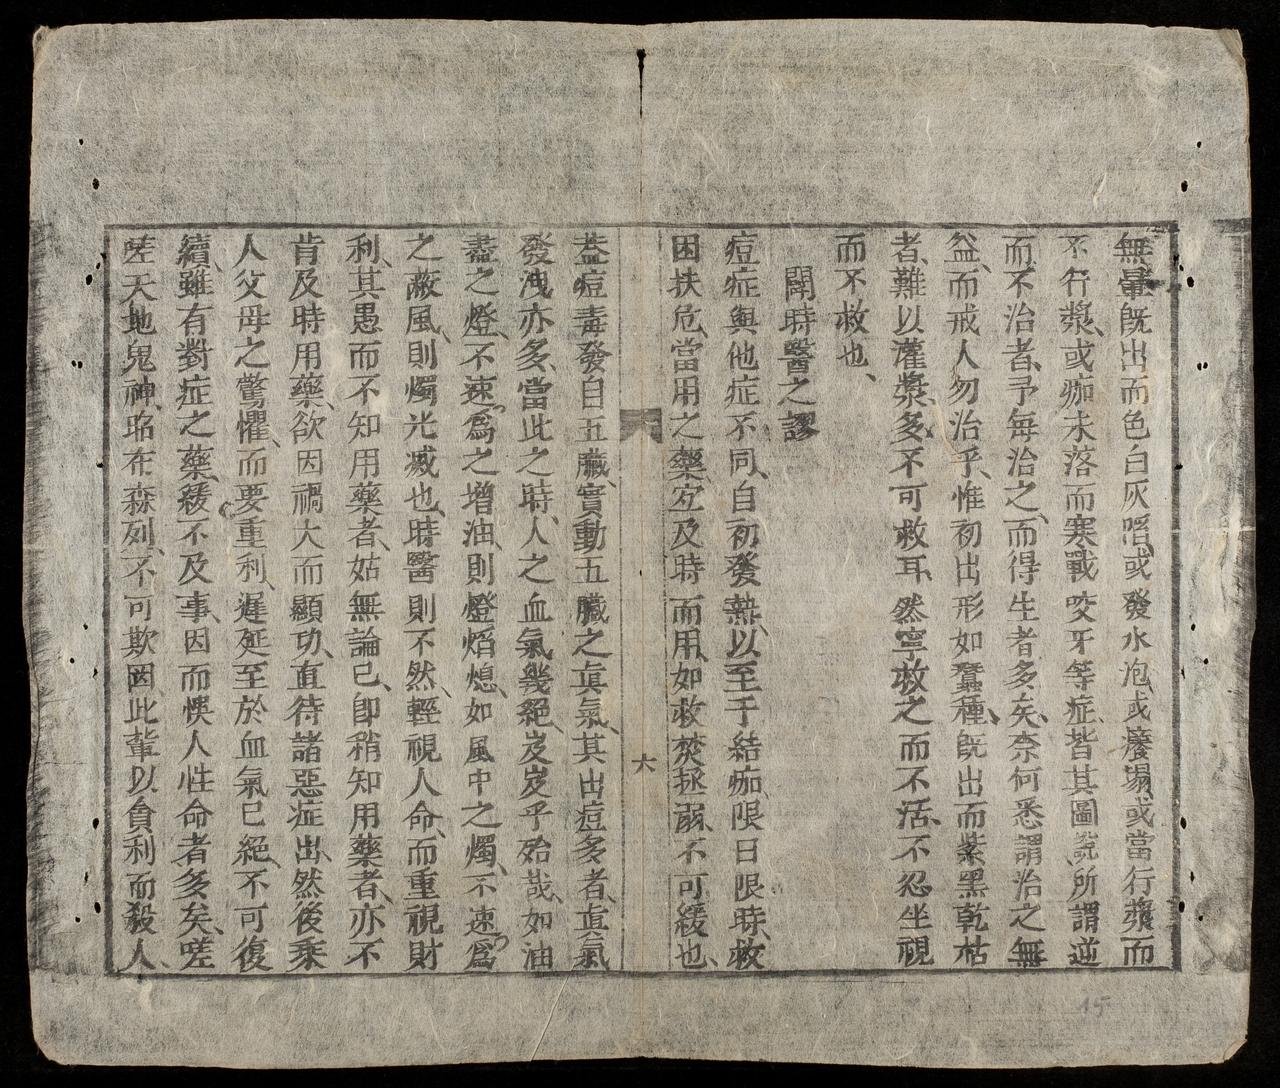 無暈旣出而色白灰陷、或發水泡、或癢塌、或當行漿而
不行漿、或痂未落而寒戰咬牙等症、皆其圖說所謂逆
而不治者、予每治之、而得生者多矣、奈何悉謂治之無
益、而戒人勿治乎、惟初出形如蠶種、旣出而紫黑乾枯
者、難以灌漿、多不可救耳、然寧救之而不活、不忍坐視
而不救也、
闢時醫之謬
痘症與他症不同、自初發熱、以至于結痂、限日限時、救
困扶危、當用之藥、宜及時而用、如救焚拯溺、不可緩也、
六
益痘毒發自五臟、實動五臟之眞氣、其出痘多者、眞氣
發洩亦多、當此之時、人之血氣幾絕、岌岌乎殆哉、如油
盡之燈、不速爲之增油、則燈熖熄、如風中之燭、不速爲
之蔽風、則燭光滅也、時醫則不然、輕視人命、而重視財
利、其愚而不知用藥者、姑無論已、即稍知用藥者、亦不
肯及時用藥、欲因禍大而顯功、直待諸惡症出、然後乘
人父母之驚懼、而要重利、遲延至於血氣已絕、不可復
續、雖有對症之藥、緩不及事、因而悞人性命者多矣、嗟
嗟天地鬼神、昭布森列、不可欺罔、此輩以貪利而殺人、
15